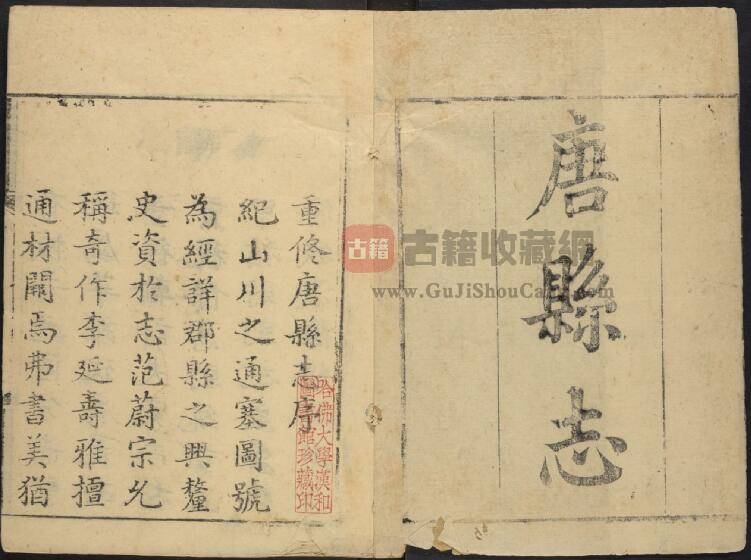 唐縣志
重修唐縣志序
紀山川之通塞圖號
為經詳郡縣之興釐
史資於志范蔚宗允
稱奇作李延壽雅擅
通材闕焉弗書美猶
哈佛大學漢和
圖書館珍藏印
古籍
古籍收藏網
www.GuJiShouCa
.com